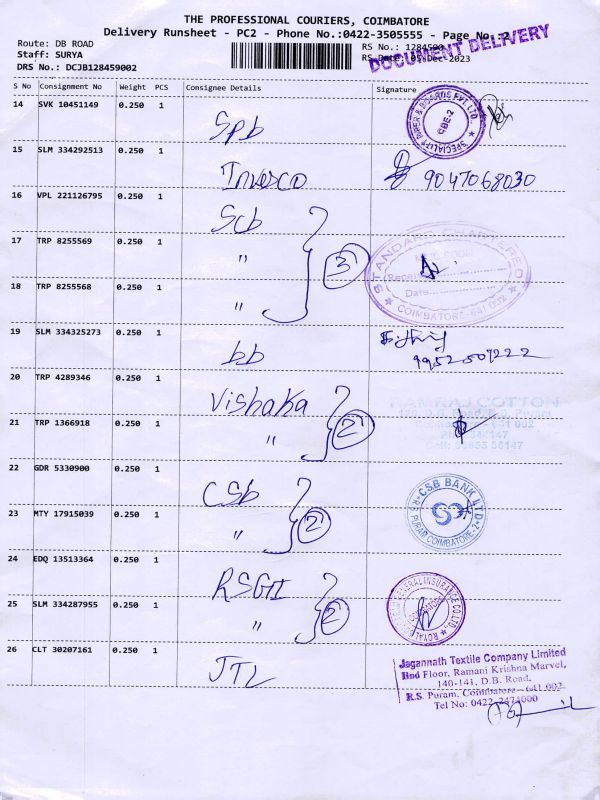 THE PROFESSIONAL COURIERS, COIMBATORE
Delivery Runsheet - PC2 - Phone No.:0422-3505555 - Page No.:2
Route: DB ROAD
Staff: SURYA
DRS No.: DCJB128459002
RS No.: 1284590
RS Date: 05-Dec-2023
DOCUMENT DELIVERY
S No Consignment No Weight PCS Consignee Details Signature
14 SVK 10451149 0.250 1 Spb
SPECIALITY PAPER & BOARDS PVT. LTD.
CBE-2
15 SLM 334292513 0.250 1 Invesco 9047068030
16 VPL 221126795 0.250 1 Scb
17 TRP 8255569 0.250 1 " 3
18 TRP 8255568 0.250 1 "
STANDARD CHARTERED
Date
COIMBATORE-641 002
19 SLM 334325273 0.250 1 bb
9952507222
20 TRP 4289346 0.250 1 Vishaka
21 TRP 1366918 0.250 1 " 2
RAMRAJ COTTON
22 GDR 5330900 0.250 1 CSb
23 MTY 17915039 0.250 1 " 2
CSB BANK LTD
R.S. PURAM COIMBATORE-2
24 EDQ 13513364 0.250 1 RSGI
25 SLM 334287955 0.250 1 " 2
GENERAL INSURANCE CO. LTD.
26 CLT 30207161 0.250 1 JTL
Jagannath Textile Company Limited
IInd Floor, Ramani Krishna Marvel,
140-141, D.B. Road,
R.S. Puram, Coimbatore - 641 002
Tel No: 0422-2474000